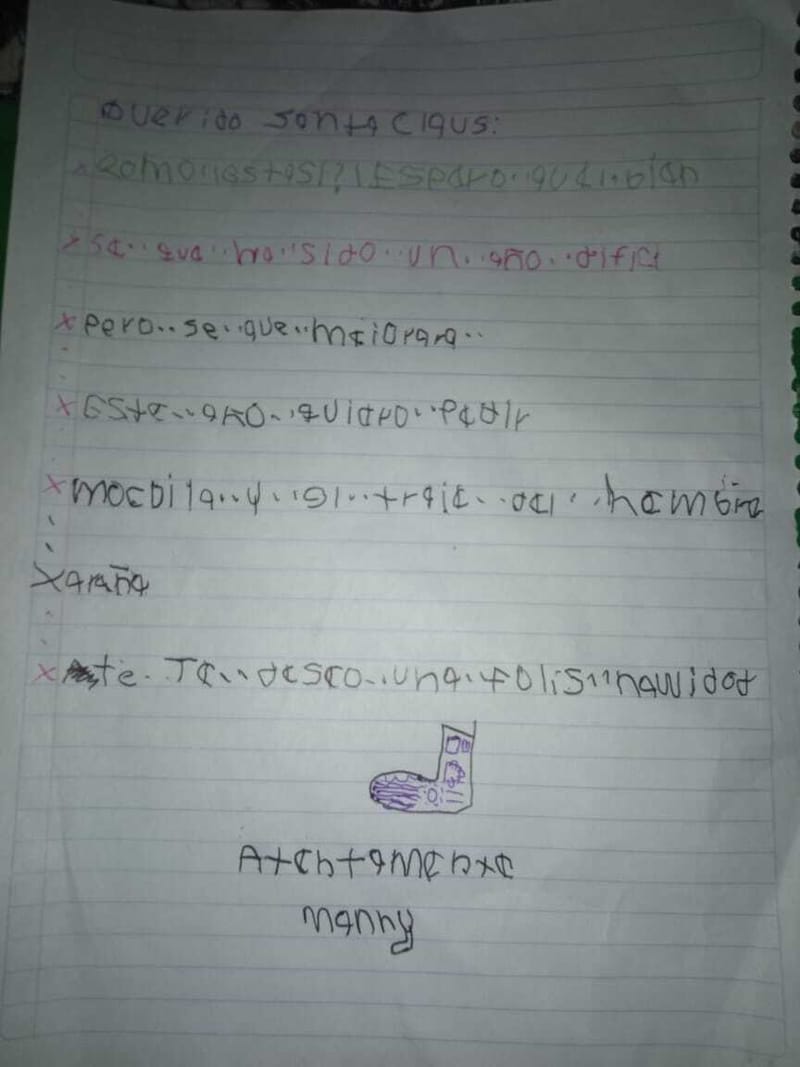 Querido santa claus:
x como estas? Espero que bien
x se que ha sido un año dificl
x pero se que mejorara
x Este año quiero pedir
x mochila y el traje del hombre
x araña
x te Te deseo una felis nawidad
Atentamente
Manny